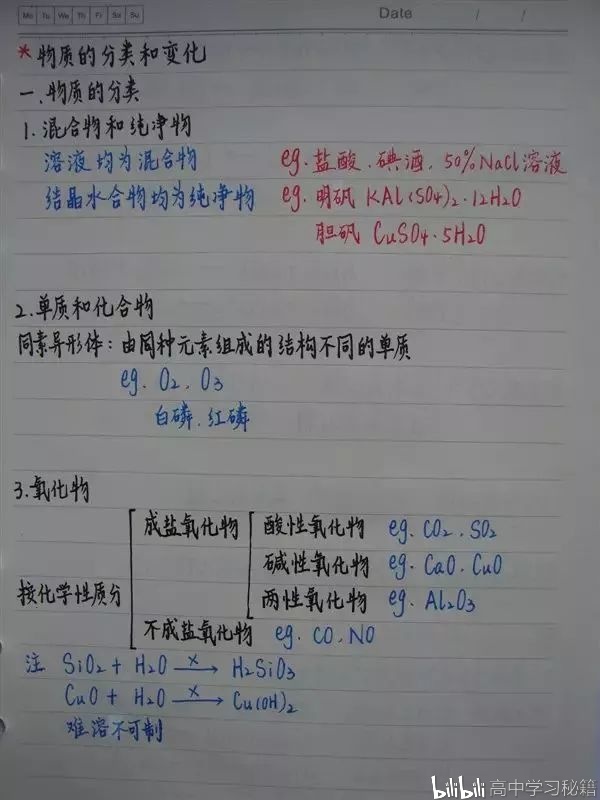 Mo Tu We Th Fr Sa Su Date / /
*物质的分类和变化
一、物质的分类
1.混合物和纯净物
溶液均为混合物 eg.盐酸、碘酒、50%NaCl溶液
结晶水合物均为纯净物 eg.明矾 KAl(SO4)2·12H2O
胆矾 CuSO4·5H2O
2.单质和化合物
同素异形体：由同种元素组成的结构不同的单质
eg. O2、O3
白磷、红磷
3.氧化物
成盐氧化物 酸性氧化物 eg. CO2、SO2
碱性氧化物 eg. CaO、CuO
按化学性质分 两性氧化物 eg. Al2O3
不成盐氧化物 eg. CO、NO
注 SiO2 + H2O —x→ H2SiO3
CuO + H2O —x→ Cu(OH)2
难溶不可制
bilibili 高中学习秘籍